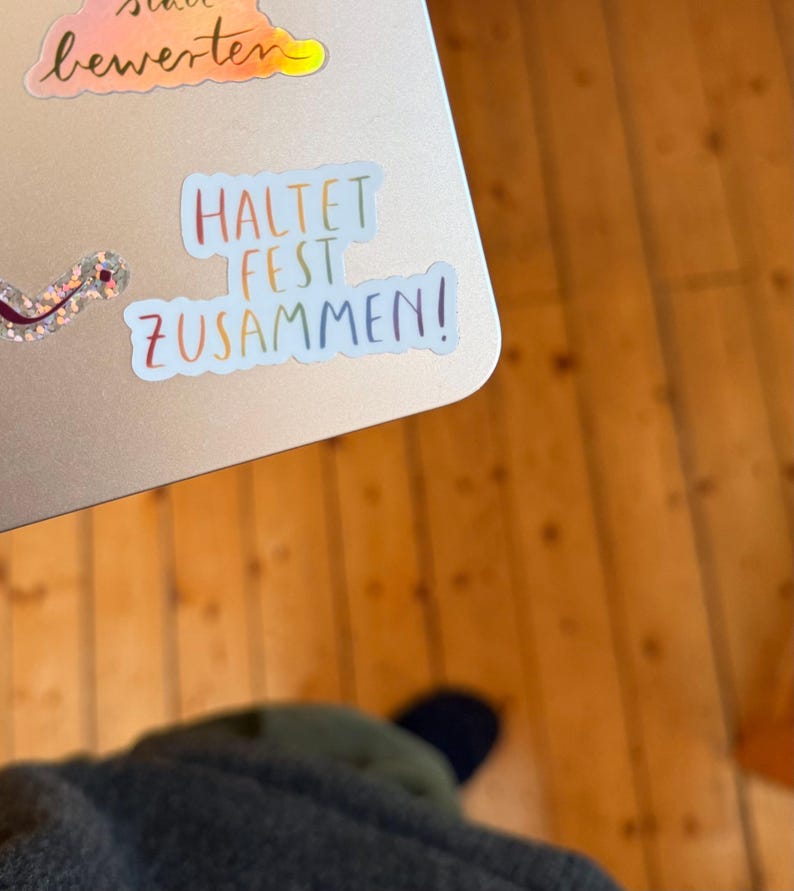 statt
bewerten
HALTET
FEST
ZUSAMMEN!